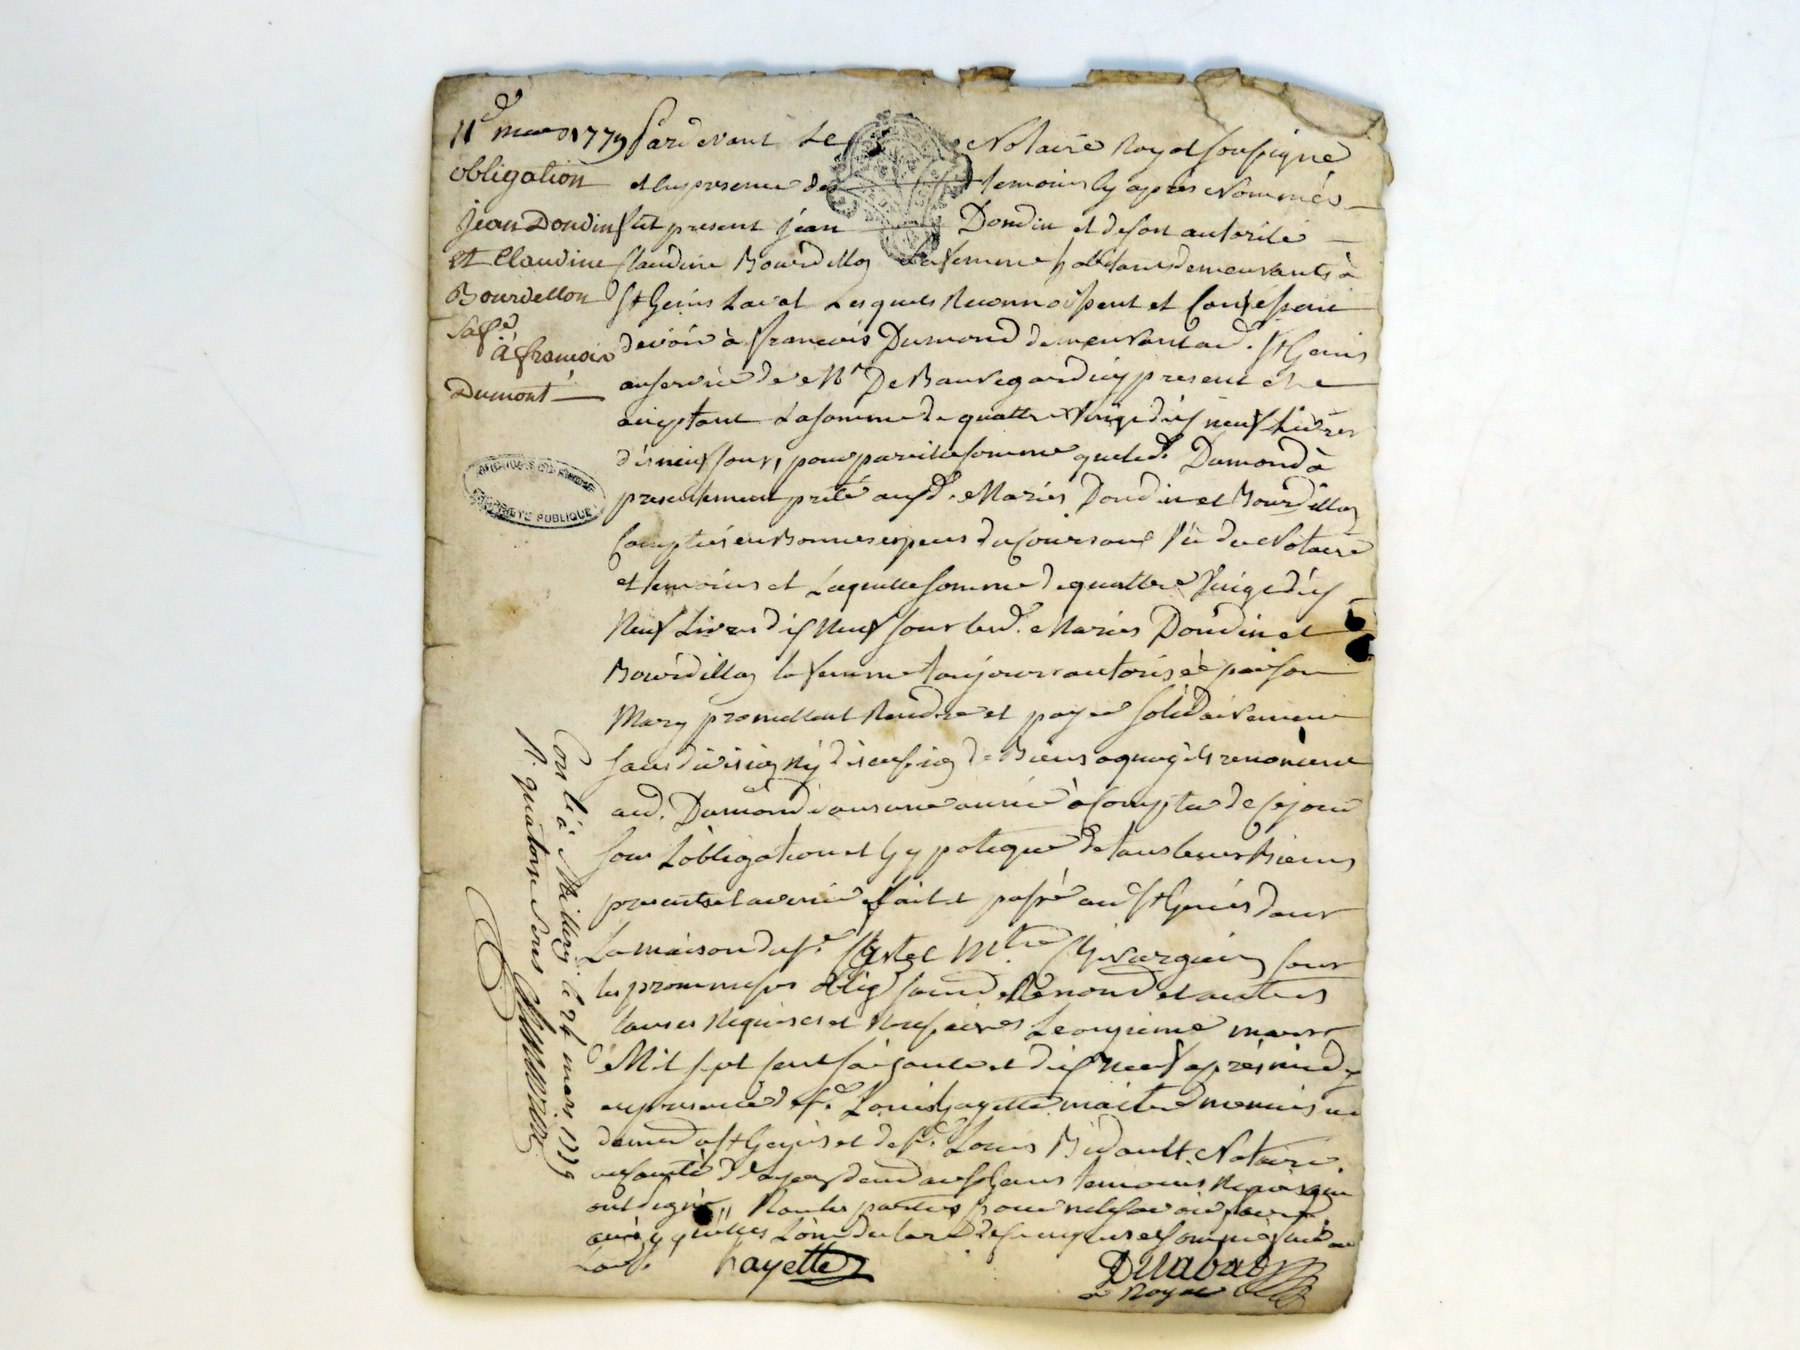 11e mars 1779
obligation
Jean Dondin
et Claudine
Bourdellon
sa fe
à françois
Dumont
ARCHIVES DU RHONE
PROPRIETE PUBLIQUE
Pardevant Le Notaire Royal soussigné
et en presence des temoins cy après Nommés
fut present Jean Dondin et de son autorité
Claudine Bourdillon sa femme habitans demeurants à
St Genis Laval Lesquels Reconnoissent et Confessent
devoir à francois Dumond demeurant aud. St Genis
au service de Mr De Bauregard icy present et
acceptant La somme de quattre Vingt dix neuf Livres
dix neuf sous, pour pareille somme que led. Dumond à
presentement preté auxd. Mariés Dondin et Bourdillon
Comptés en Bonnes espèces du Cours au Vû du Notaire
et temoins et Laquelle somme de quattre Vingt dix
Neuf Livres dix Neuf sous lesd. Mariés Dondin et
Bourdillon la femme toujours autorisée par son
Mary promettent Rendre et payer solidairement
sans division ny discussion de Biens a quoy ils renoncent
aud. Dumond dans une année à Compter de ce jour
sous L'obligation et hypoteque de tous leurs Biens
presents et avenir fait et passé aud St Genis dans
La maison du sr Mtre Chirurgien sous
les promesses oblig soumd Renond et autres
clauses Requises et Necessaires Le onzieme mars
Mil sept cent soixante et dix Neuf après midy
en presence de sr Louis hayette maitre menuisier
demt à St Genis et de sr Louis Bidault Notaire
temoins Requis qui
ont signé, Non les parties pour ne le savoir faire
hayette
Delabat
Ne Royal
Conlé à Millery le 24 mars 1779
R. quatorze sous